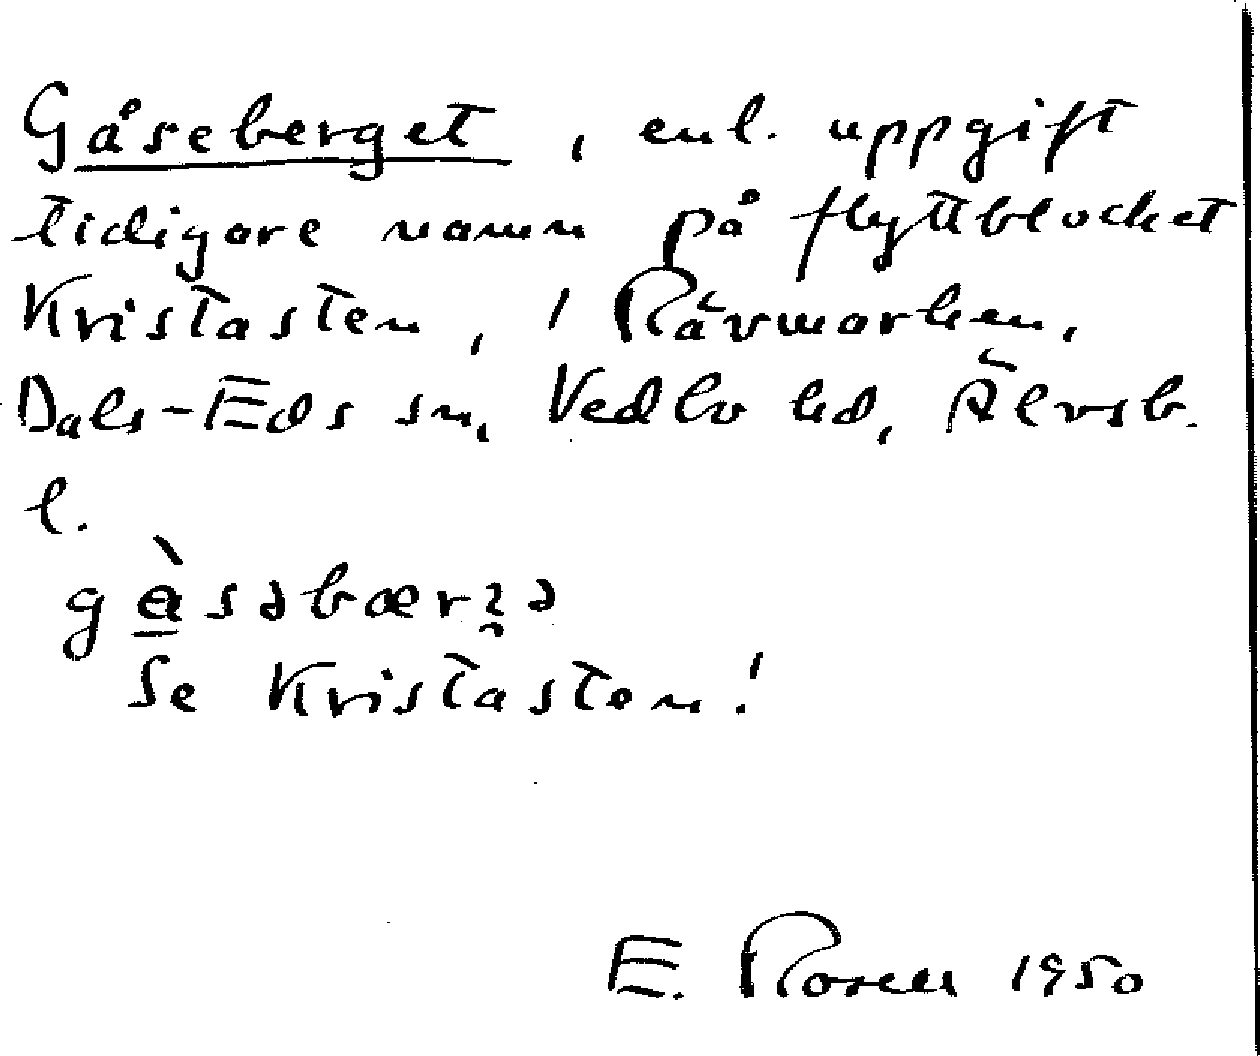 Gåseberget, enl. uppgift
tidigare namn på flyttblocket
Kristasten, i Rävmarken,
Dals-Eds sn, Vedbo hd, Älvsb.
l.
Se Kristasten!
E. Rosell 1950